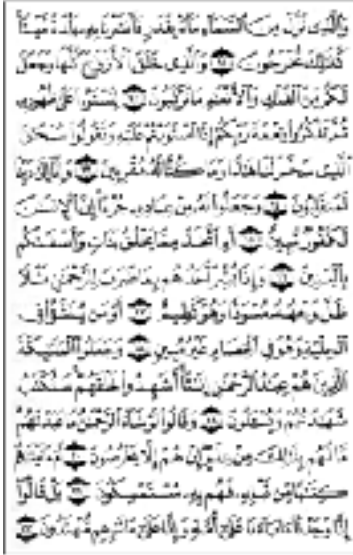 وَالَّذِي نَزَّلَ مِنَ السَّمَاءِ مَاءً بِقَدَرٍ فَأَنشَرْنَا بِهِ بَلْدَةً مَّيْتًا
كَذَٰلِكَ تُخْرَجُونَ ١١ وَالَّذِي خَلَقَ الْأَزْوَاجَ كُلَّهَا وَجَعَلَ
لَكُم مِّنَ الْفُلْكِ وَالْأَنْعَامِ مَا تَرْكَبُونَ ١٢ لِتَسْتَوُوا عَلَىٰ ظُهُورِهِ
ثُمَّ تَذْكُرُوا نِعْمَةَ رَبِّكُمْ إِذَا اسْتَوَيْتُمْ عَلَيْهِ وَتَقُولُوا سُبْحَانَ
الَّذِي سَخَّرَ لَنَا هَٰذَا وَمَا كُنَّا لَهُ مُقْرِنِينَ ١٣ وَإِنَّا إِلَىٰ رَبِّنَا
لَمُنقَلِبُونَ ١٤ وَجَعَلُوا لَهُ مِنْ عِبَادِهِ جُزْءًا إِنَّ الْإِنسَانَ
لَكَفُورٌ مُّبِينٌ ١٥ أَمِ اتَّخَذَ مِمَّا يَخْلُقُ بَنَاتٍ وَأَصْفَاكُم
بِالْبَنِينَ ١٦ وَإِذَا بُشِّرَ أَحَدُهُم بِمَا ضَرَبَ لِلرَّحْمَٰنِ مَثَلًا
ظَلَّ وَجْهُهُ مُسْوَدًّا وَهُوَ كَظِيمٌ ١٧ أَوَمَن يُنَشَّأُ فِي
الْحِلْيَةِ وَهُوَ فِي الْخِصَامِ غَيْرُ مُبِينٍ ١٨ وَجَعَلُوا الْمَلَائِكَةَ
الَّذِينَ هُمْ عِبَادُ الرَّحْمَٰنِ إِنَاثًا أَشَهِدُوا خَلْقَهُمْ سَتُكْتَبُ
شَهَادَتُهُمْ وَيُسْأَلُونَ ١٩ وَقَالُوا لَوْ شَاءَ الرَّحْمَٰنُ مَا عَبَدْنَاهُم
مَّا لَهُم بِذَٰلِكَ مِنْ عِلْمٍ إِنْ هُمْ إِلَّا يَخْرُصُونَ ٢٠ أَمْ آتَيْنَاهُمْ
كِتَابًا مِّن قَبْلِهِ فَهُم بِهِ مُسْتَمْسِكُونَ ٢١ بَلْ قَالُوا
إِنَّا وَجَدْنَا آبَاءَنَا عَلَىٰ أُمَّةٍ وَإِنَّا عَلَىٰ آثَارِهِم مُّهْتَدُونَ ٢٢